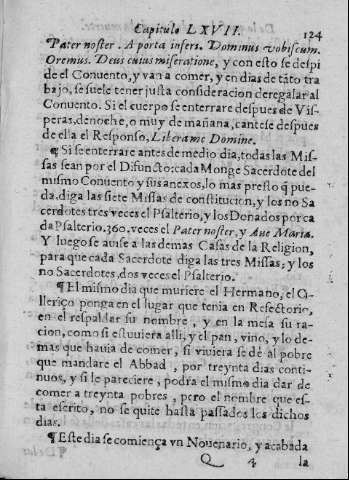 Capitulo LXVII. 124
Pater noster. A porta inferi. Dominus vobiscum.
Oremus. Deus cuius miseratione, y con esto se despi
de el Conuento, y van a comer, y en dias de tãto tra
bajo, se suele tener justa consideracion deregalar al
Conuento. Si el cuerpo se enterrare despues de Vis-
peras, de noche, o muy de mañana, cantese despues
de ella el Responso, Liberame Domine.
¶ Si se enterrare antes de medio dia, todas las Mis-
sas sean por el Difunto: cada Monge Sacerdote del
mismo Conuento y sus anexos, lo mas presto q̃ pue-
da, diga las siete Missas de constitucion, y los no Sa
cerdotes tres veces el Psalterio, y los Donados por ca
da Psalterio. 360. veces el Pater noster, y Aue Maria.
Y luego se auise a las demas Casas de la Religion,
para que cada Sacerdote diga las tres Missas; y los
no Sacerdotes, dos veces el Psalterio.
¶ El mismo dia que muriere el Hermano, el Ci-
llerico ponga en el lugar que tenia en Refectorio,
en el respaldar su nombre, y en la mesa su ra-
cion, como si estuuiera alli, y el pan, vino, y lo de-
mas que hauia de comer, si viuiera se dè al pobre
que mandare el Abbad, por treynta dias conti-
nuos, y si le pareciere, podra el mismo dia dar de
comer a treynta pobres, pero el nombre que es-
ta escrito, no se quite hasta passados los dichos
dias.
¶ Este dia se comiença vn Nouenario, y acabada
Q 4 la